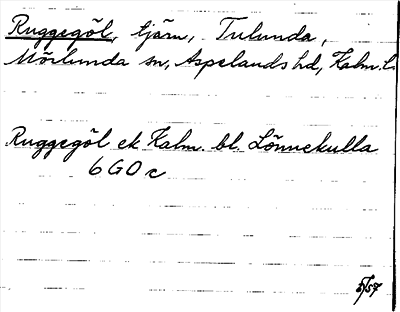 Ruggegöl, tjärn, Tulunda,
Mörlunda sn, Aspelands hd, Kalm. l.
Ruggegöl ek Kalm. bl. Lönnekulla
6 G O c
5/57